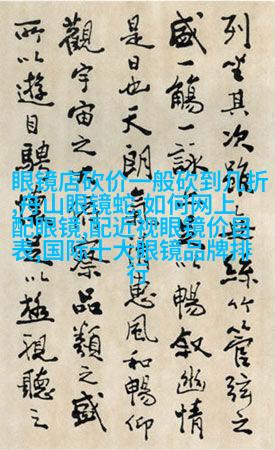 列坐其次雖無絲竹管弦之
盛一觴一詠以暢敘幽情
是日也天朗氣惠風和暢仰
觀宇宙之察品類之盛
所以遊目騁以極視聽之
眼镜店砍价一般砍到几折
山眼镜蛇,如何网上
配眼镜,配近视眼镜价目
表,国际十大眼镜品牌排
行